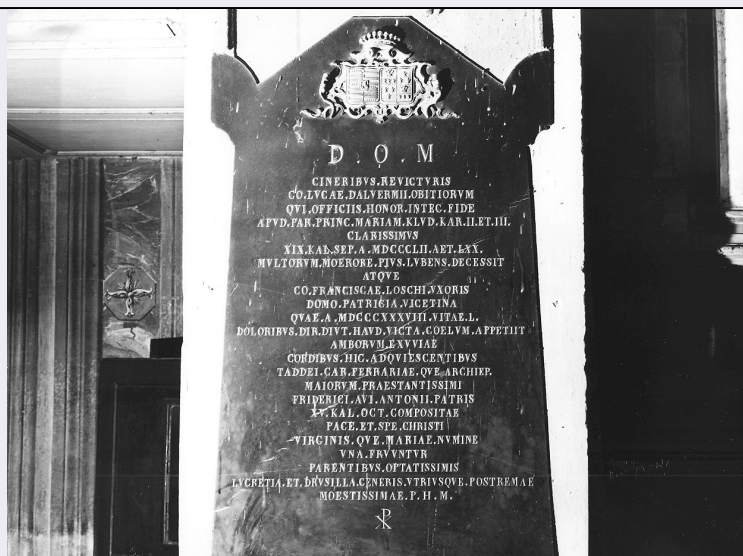 D . O . M
CINERIBVS.REVICTVRIS
CO.LVCAE.DALVERMII.OBITIORVM
QVI.OFFICIIS.HONOR.INTEG.FIDE
APVD.PAR.PRINC.MARIAM.KLVD.KAR.II.ET.III.
CLARISSIMVS
XIX.KAL.SEP.A.MDCCCLII.AET.LXX.
MVLTORVM.MOERORE.PIVS.LVBENS.DECESSIT
ATQVE
CO.FRANCISCAE.LOSCHI.VXORIS
DOMO.PATRICIA.VICETINA
QVAE.A.MDCCCXXXVIII.VITAE.L.
DOLORIBVS.DIR.DIVT.HAVD.VICTA.COELVM.APPETIIT
AMBORVM.EXVVIAE
CORDIBVS.HIC.ADQVIESCENTIBVS
TADDEI.CAR.FERRARIAE.QVE.ARCHIEP.
MAIORVM.PRAESTANTISSIMI
FRIDERICI.AVI.ANTONII.PATRIS
XV.KAL.OCT.COMPOSITAE
PACE.ET.SPE.CHRISTI
VIRGINIS.QVE.MARIAE.NVMINE
VNA.FRVVNTVR
PARENTIBVS.OPTATISSIMIS
LVCRETIA.ET.DRVSILLA.GENERIS.VTRIVSQVE.POSTREMAE
MOESTISSIMAE.P.H.M.
☧